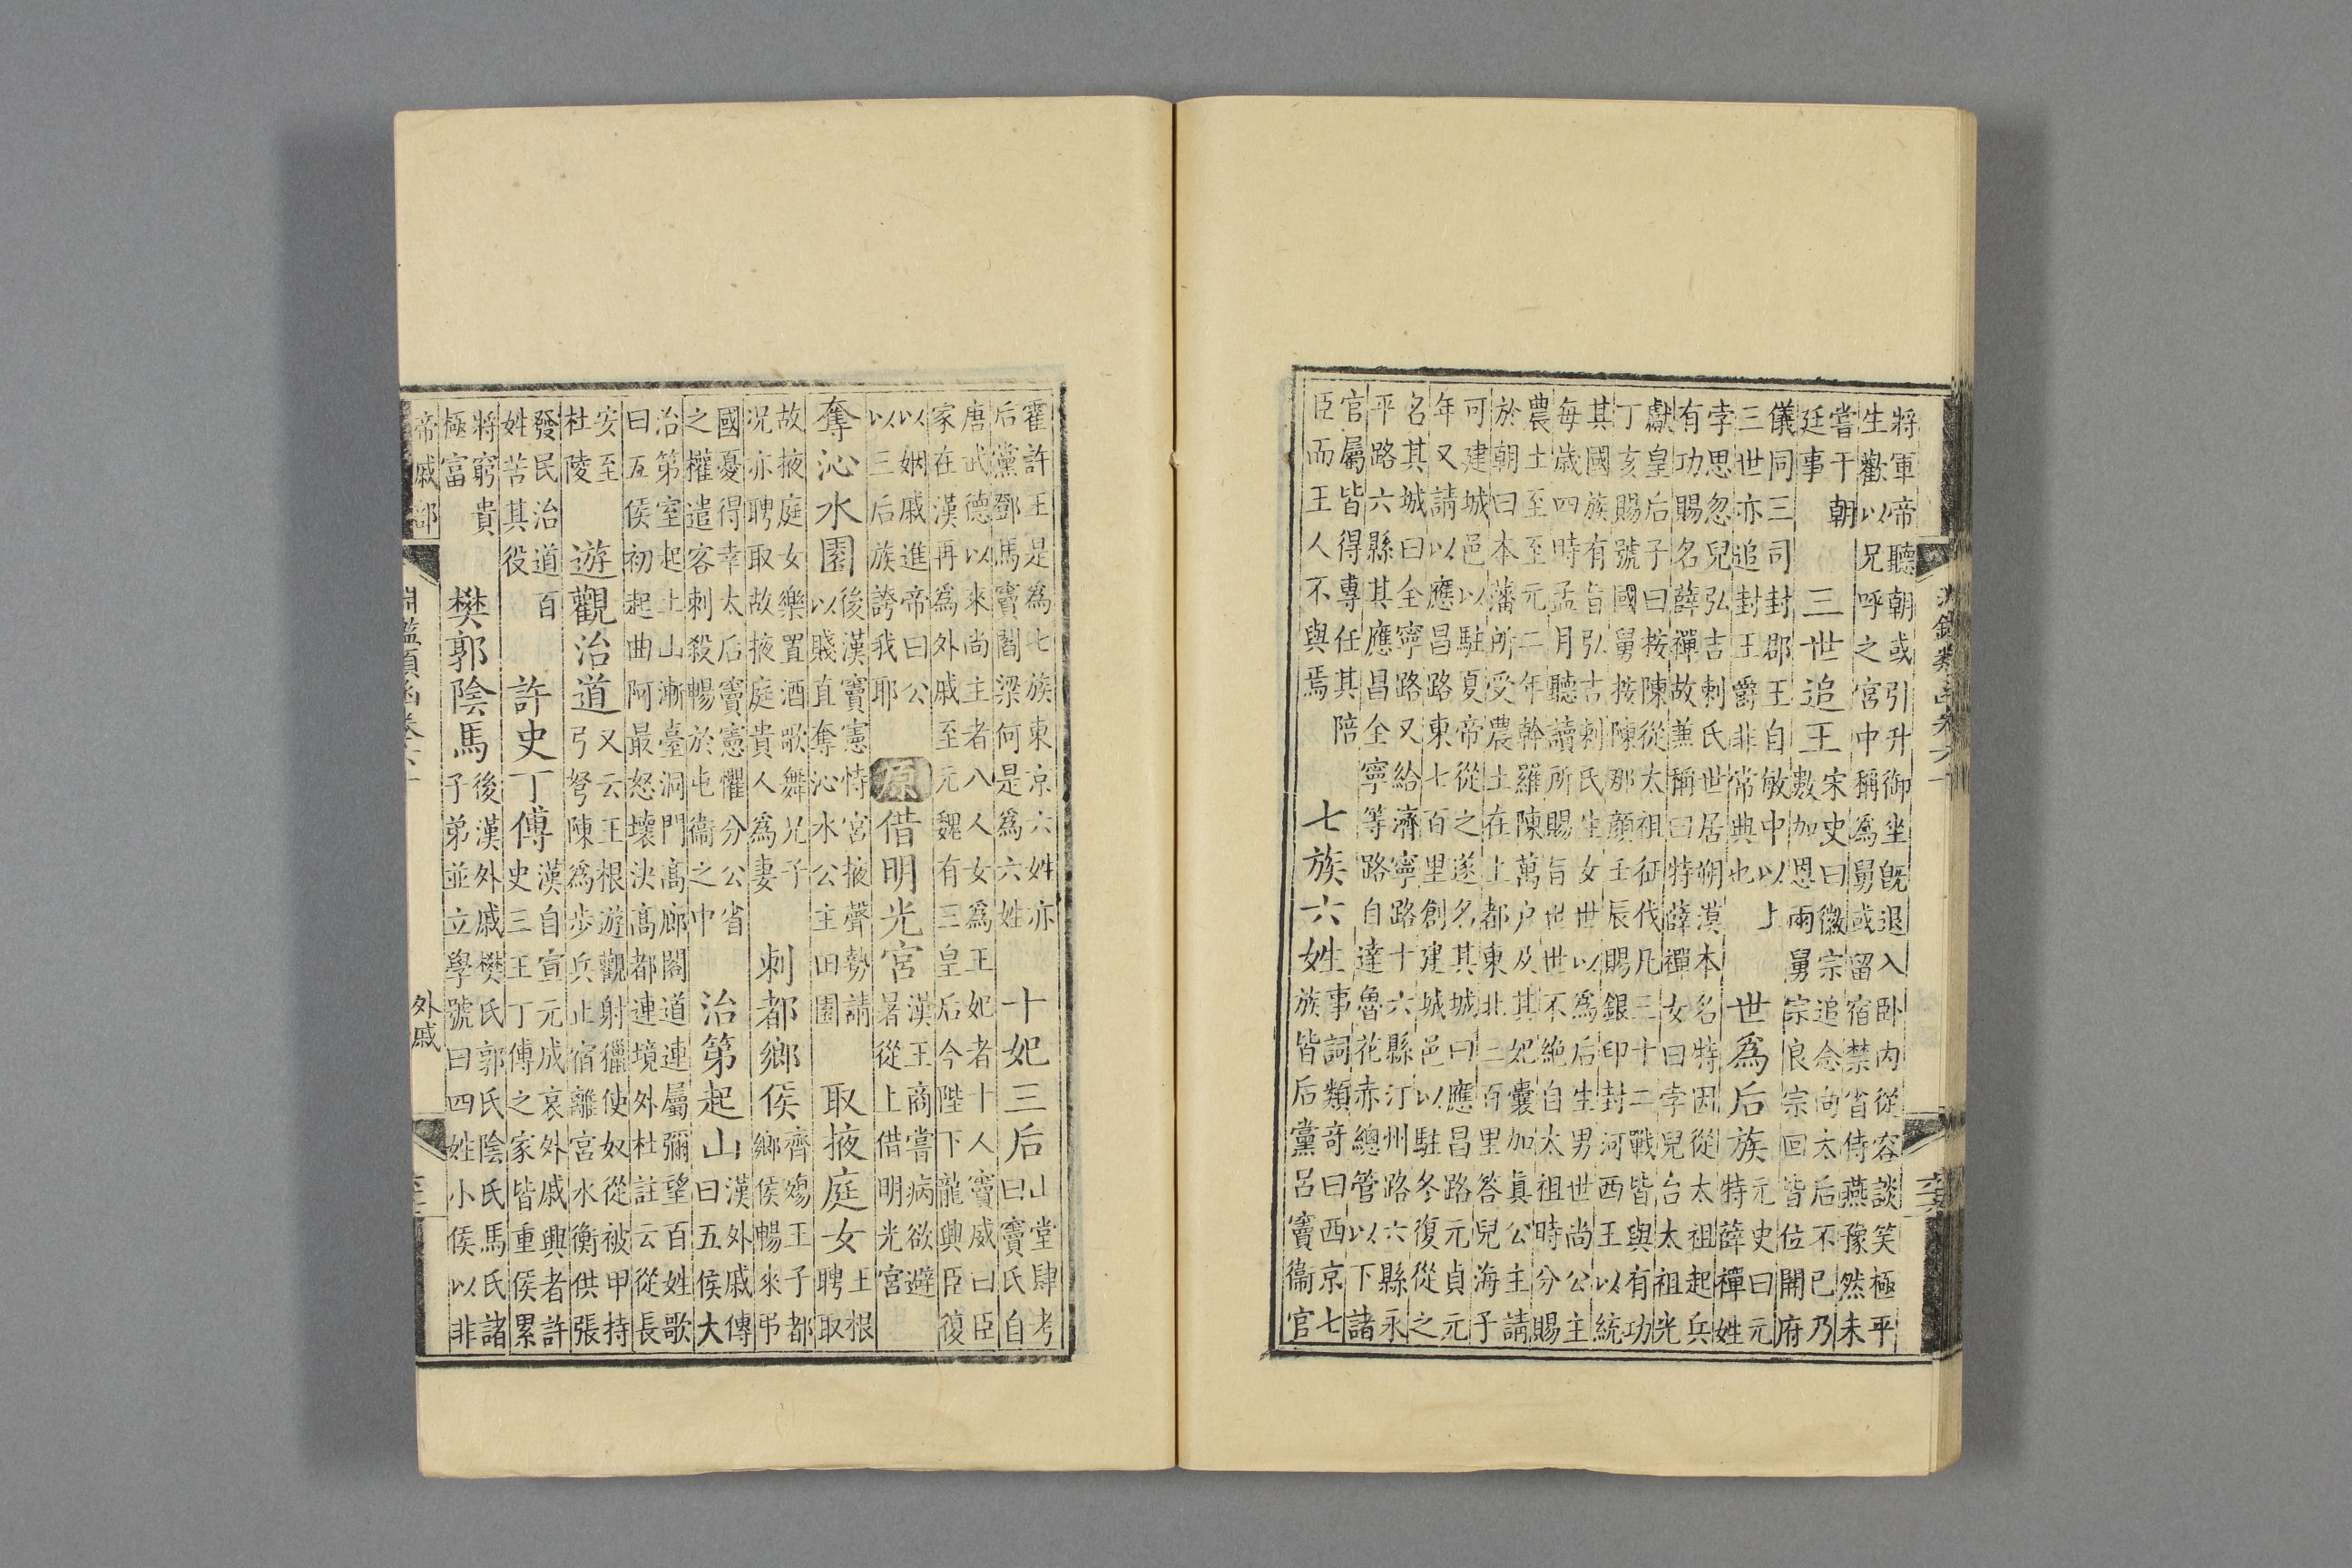 將軍帝聽朝或引升御坐旣退入卧內從容談笑極平
生歡以兄呼之宮中稱爲舅或留宿禁省侍燕豫然未
嘗干朝
廷事
三世追王
宋史曰徽宗追念向太后不已乃
數加恩兩舅宗良宗回皆位開府
儀同三司封郡王自敏中以上
三世亦追封王爵非常典也
世爲后族
元史曰元
特薛禪姓
孛思忽兒弘吉剌氏世居朔漠本名特因從太祖起兵
有功賜名薛禪故兼稱曰特薛禪女曰孛兒台太祖光
獻皇后子曰按陳從太祖征伐凡三十二戰皆與有功
丁亥賜號國舅按陳那顏壬辰賜銀印封河西王以統
其國族有旨弘吉剌氏生女世以爲后生男世尚公主
每歲四時孟月聽讀所賜旨世世不絶自太祖時分賜
農土至至元二年幹羅陳萬户及其妃囊加真公主請
於朝曰本藩所受農土在上都東北三百里答兒海子
可建城邑以駐夏帝從之遂名其城曰應昌路元貞元
年又請以應昌路東七百里創建城邑以駐冬復從之
名其城曰全寧路又給濟寧路十六縣汀州路六縣永
平路六縣其應昌全寧等路自達魯花赤總管以下諸
官屬皆得專任其陪
臣而王人不與焉
七族六姓
事詞類奇曰西京七
族皆后黨呂竇衞官
霍許王是爲七族東京六姓亦
后黨鄧馬竇閻梁何是爲六姓
十妃三后
山堂肆考
曰竇氏自
唐武德以來尚主者八人女爲王妃者十人竇威曰臣
家在漢再爲外戚至元魏有三皇后今陛下龍興臣復
以姻戚進帝曰公
以三后族誇我耶
原借明光宮
漢王商嘗病欲避
暑從上借明光宮
奪沁水園
後漢竇憲恃宮掖聲勢請
以賤直奪沁水公主田園
取掖庭女
王根
聘取
故掖庭女樂置酒歌舞兄子
况亦聘取故掖庭貴人爲妻
刺都鄉侯
齊殤王子都
鄉侯暢來弔
國憂得幸太后竇憲懼分公省
之權遣客刺殺暢於屯衞之中
治第起山
漢外戚傳
曰五侯大
治第室起土山漸臺洞門高廊閣道連屬彌望百姓歌
曰五侯初起曲阿最怒壞決高都連境外杜註云從長
安至
杜陵
遊觀治道
又云王根遊觀射獵使奴從被甲持
弓弩陳爲步兵止宿離宮水衡供張
發民治道百
姓苦其役
許史丁傅
漢自宣元成哀外戚興者許
史三王丁傅之家皆重侯累
將窮貴
極富
樊郭陰馬
後漢外戚樊氏郭氏陰氏馬氏諸
子弟並立學號曰四姓小侯以非
帝戚部
外戚